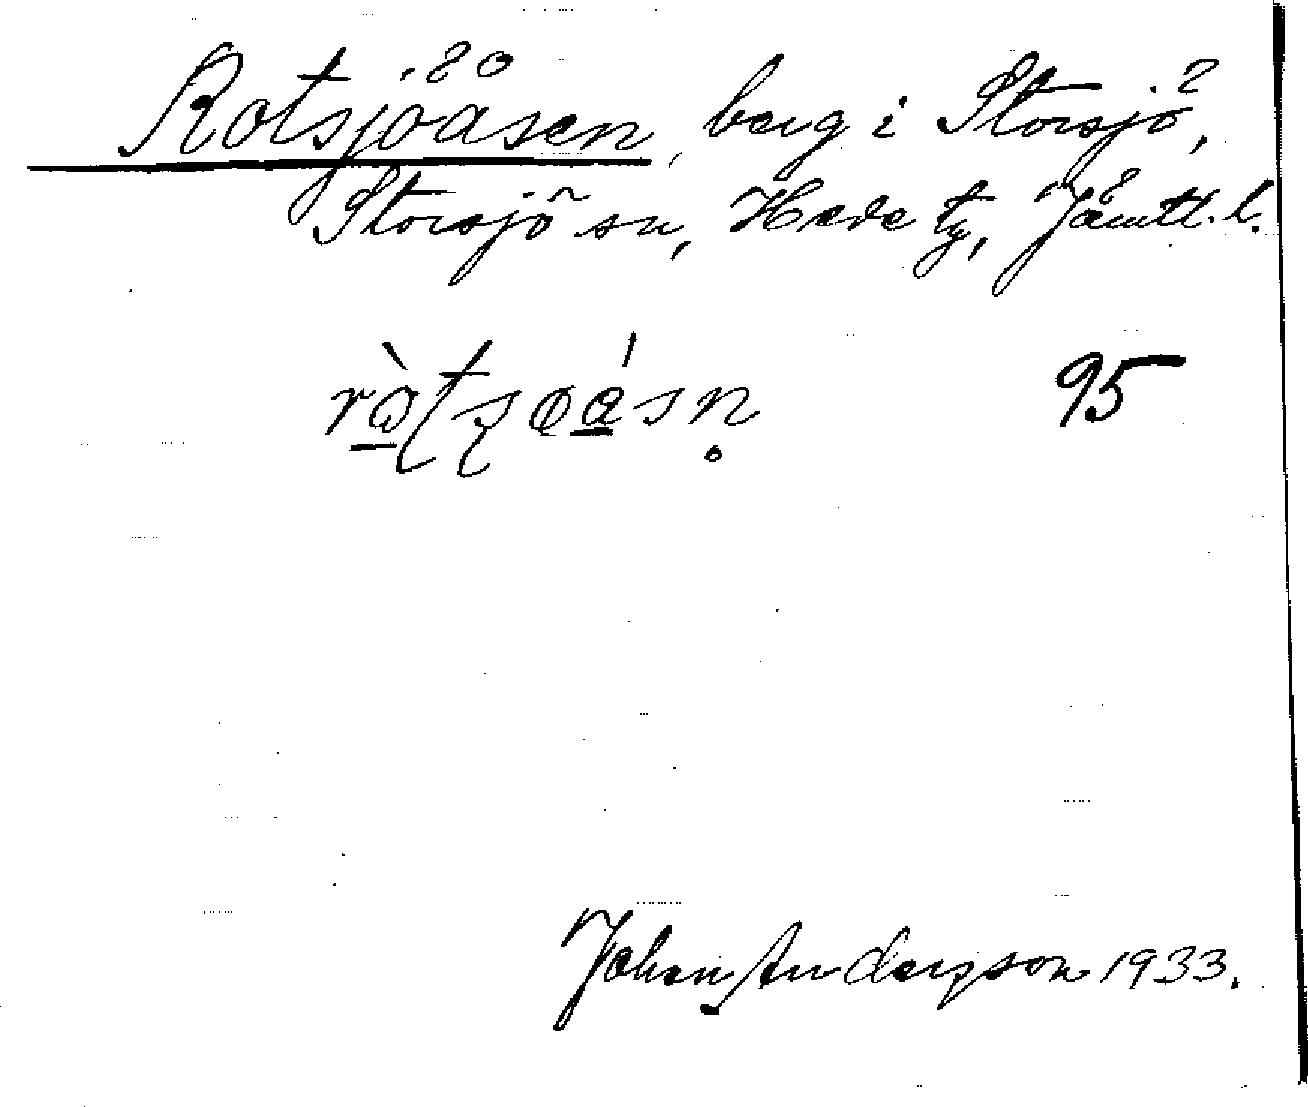 Rotsjöåsen, berg i Storsjö,
Storsjö sn, Hede tg, Jämtl. l.
95
Johan Anderson 1933.